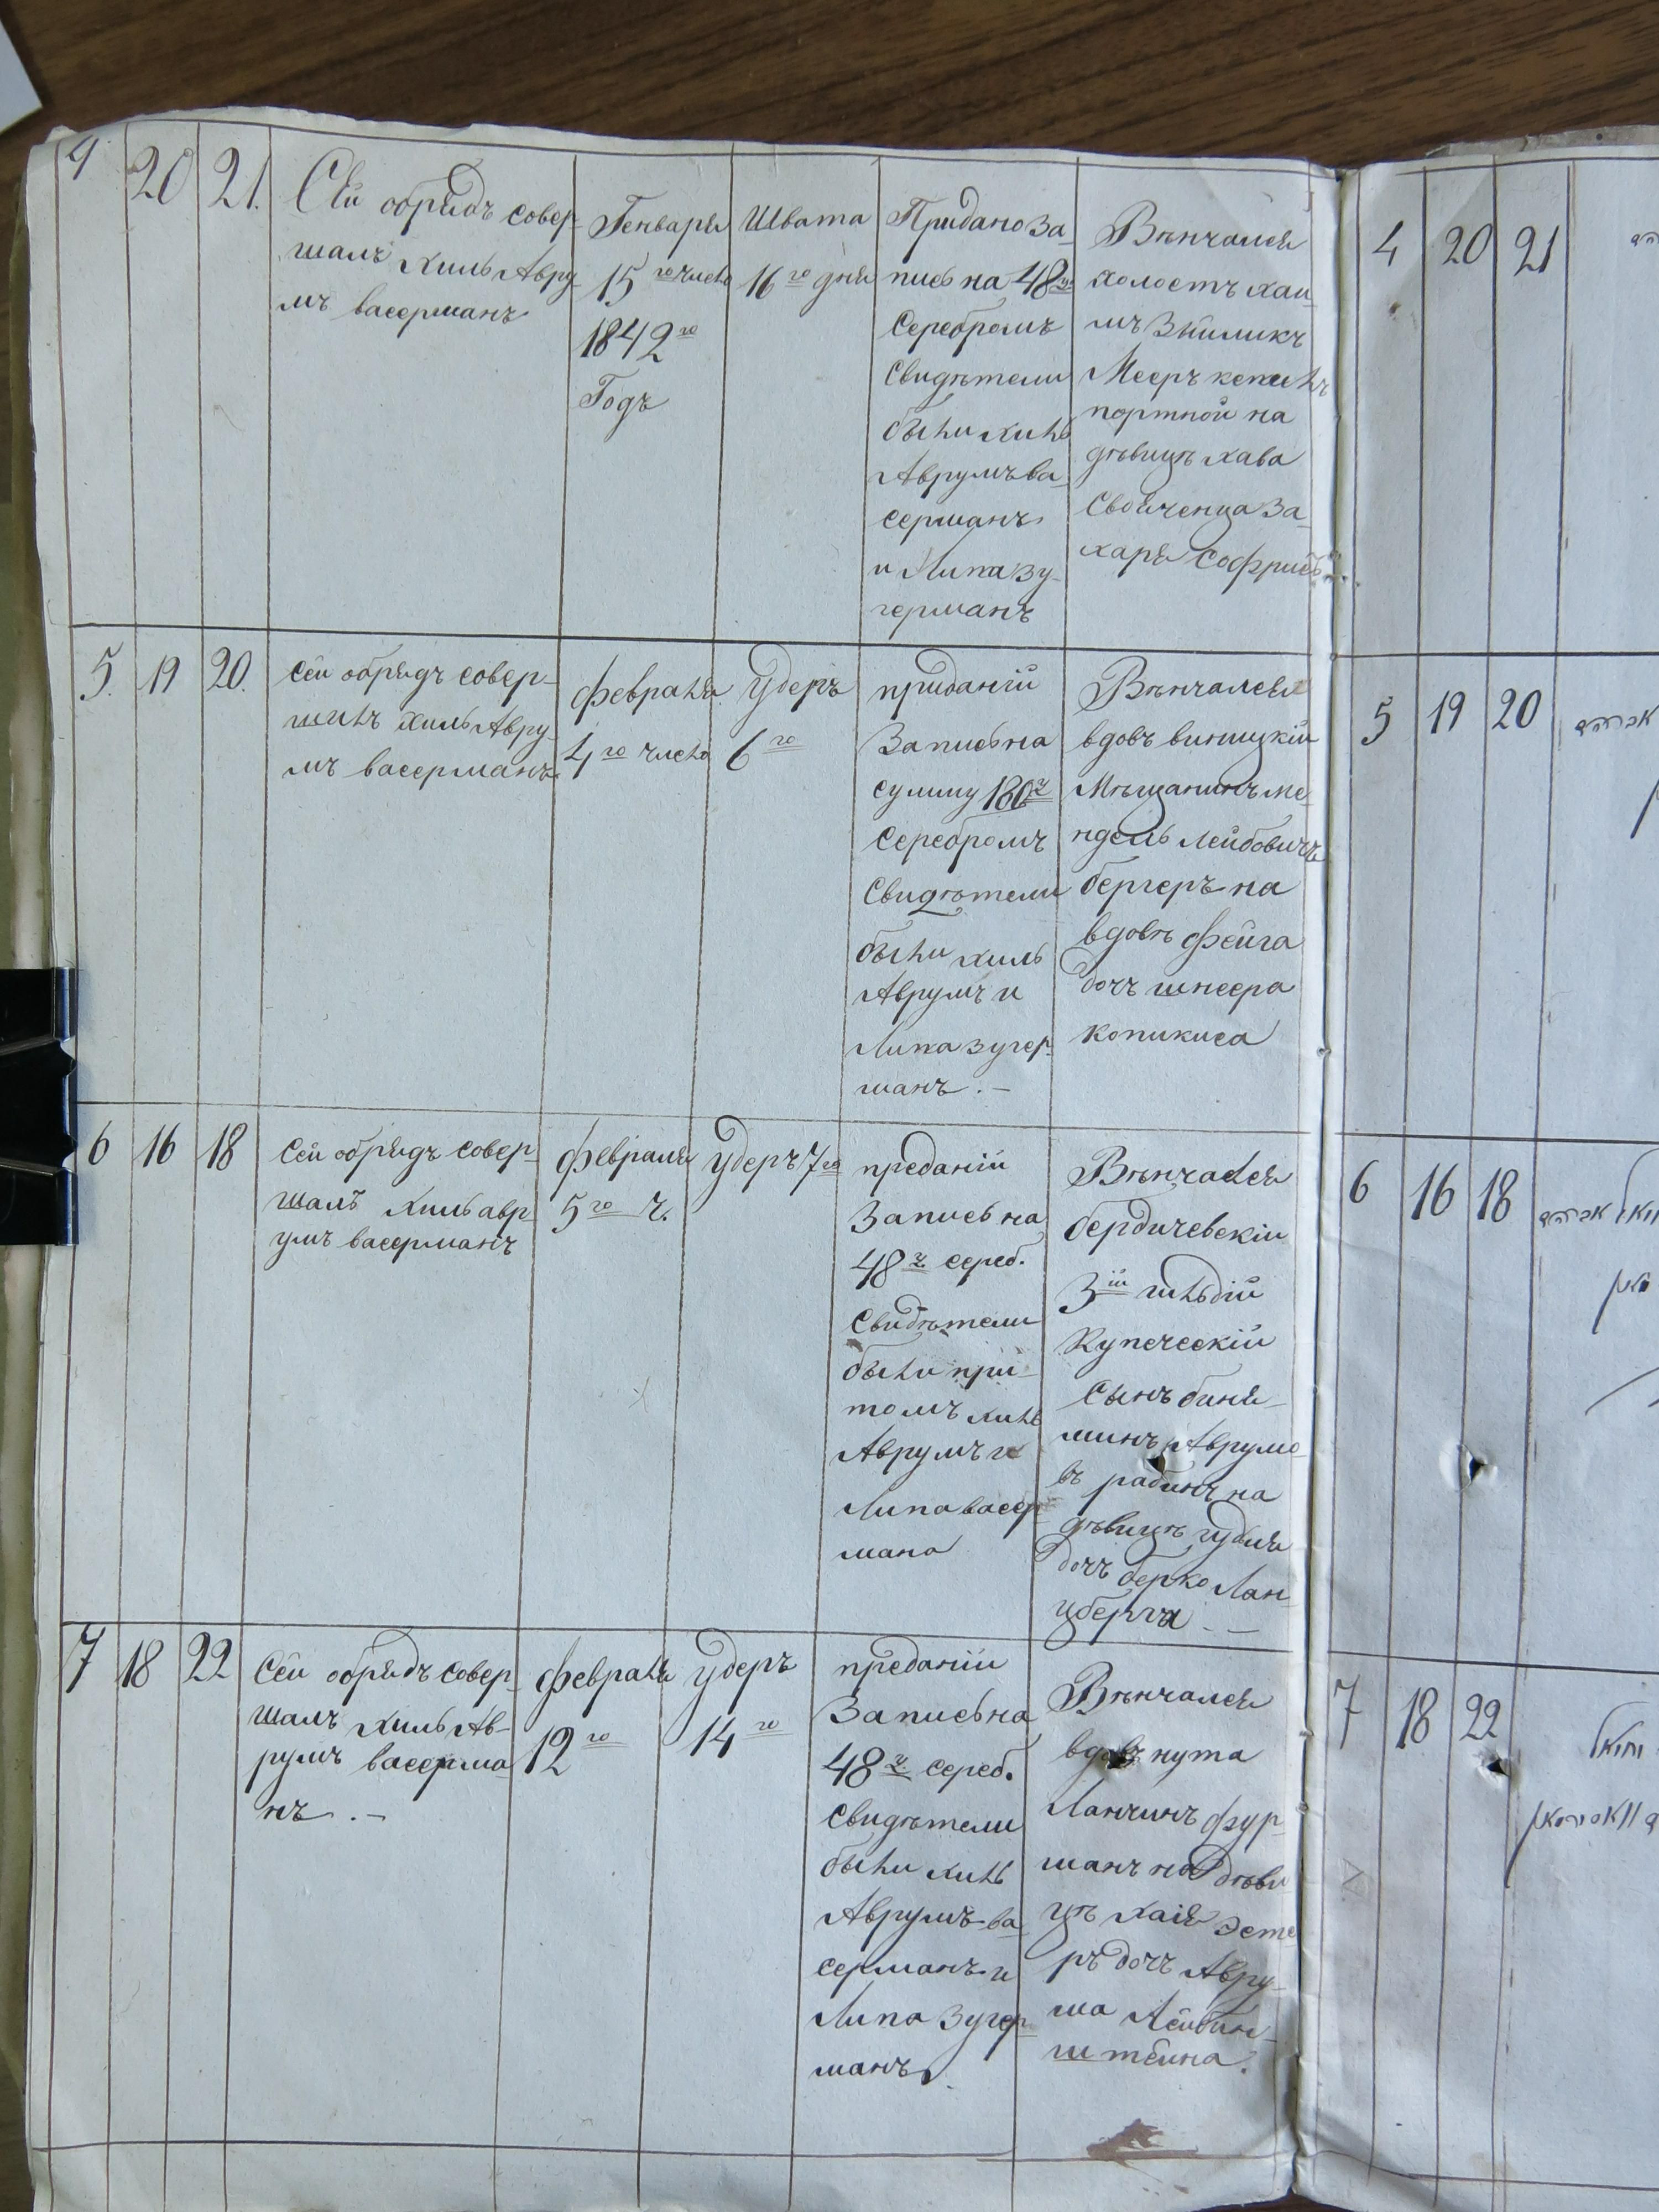 4
20
21.
Сей обрядъ совер-
шалъ Хиль Авру-
мъ васерманъ
Генваря
15 го числа
1842 го
Годъ
Швата
16 го дня
Придано за-
пись на 48
Серебромъ
Свидѣтели
были Хиль
Аврумъ ва-
серманъ
и Липа зу-
германъ
Вѣнчался
холостъ хаи-
мъ
Мееръ
портной на
дѣвицѣ хава
За-
харя
5.
19
20.
Сей обрядъ совер-
шилъ Хиль Авру-
мъ васерманъ
февраля
4 го числа
Удеръ
6 го
приданій
Запись на
сумму 180
Серебромъ
Свидѣтели
были хиль
Аврумъ и
Липа зугер-
манъ . —
Вѣнчался
вдовъ виницкій
Мѣщанинъ ме-
ндель Лейбовичъ
бергеръ на
вдовѣ фейга
дочъ шнеера
копикиса
6
16
18
Сей обрядъ совер-
шалъ Хиль авр
умъ васерманъ
февраля
5 го ч.
Удеръ 7 го
преданій
Запись на
48 сереб.
Свидѣтели
были при-
томъ хиль
Аврумъ и
Липа васер
мана
Вѣнчался
бердичевскій
3 ій гильдій
Купеческій
Сынъ биня-
минъ Аврумо-
въ рабинъ на
дѣвицѣ
дочъ берко Лан-
цберга . —
7
18
22
Сей обрядъ совер-
шалъ Хиль Ав-
румъ васерма
нъ . —
февраля
12 го
Удеръ
14 го
преданій
Запись на
48 сереб.
Свидѣтели
были хиль
Аврумъ ва
серманъ и
Липа Зугер
манъ.
Вѣнчался
вдовъ нута
Ланчинъ фур-
манъ на дѣви
цѣ хаія Эсте
ръ дочъ Авру-
ма Лейбин-
штейна.
4
20
21
5
19
20
אברהם
6
16
18
אברהם
7
18
22